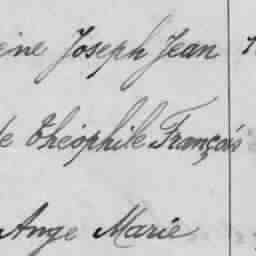 ine Joseph Jean
le Théophile François
Ange Marie